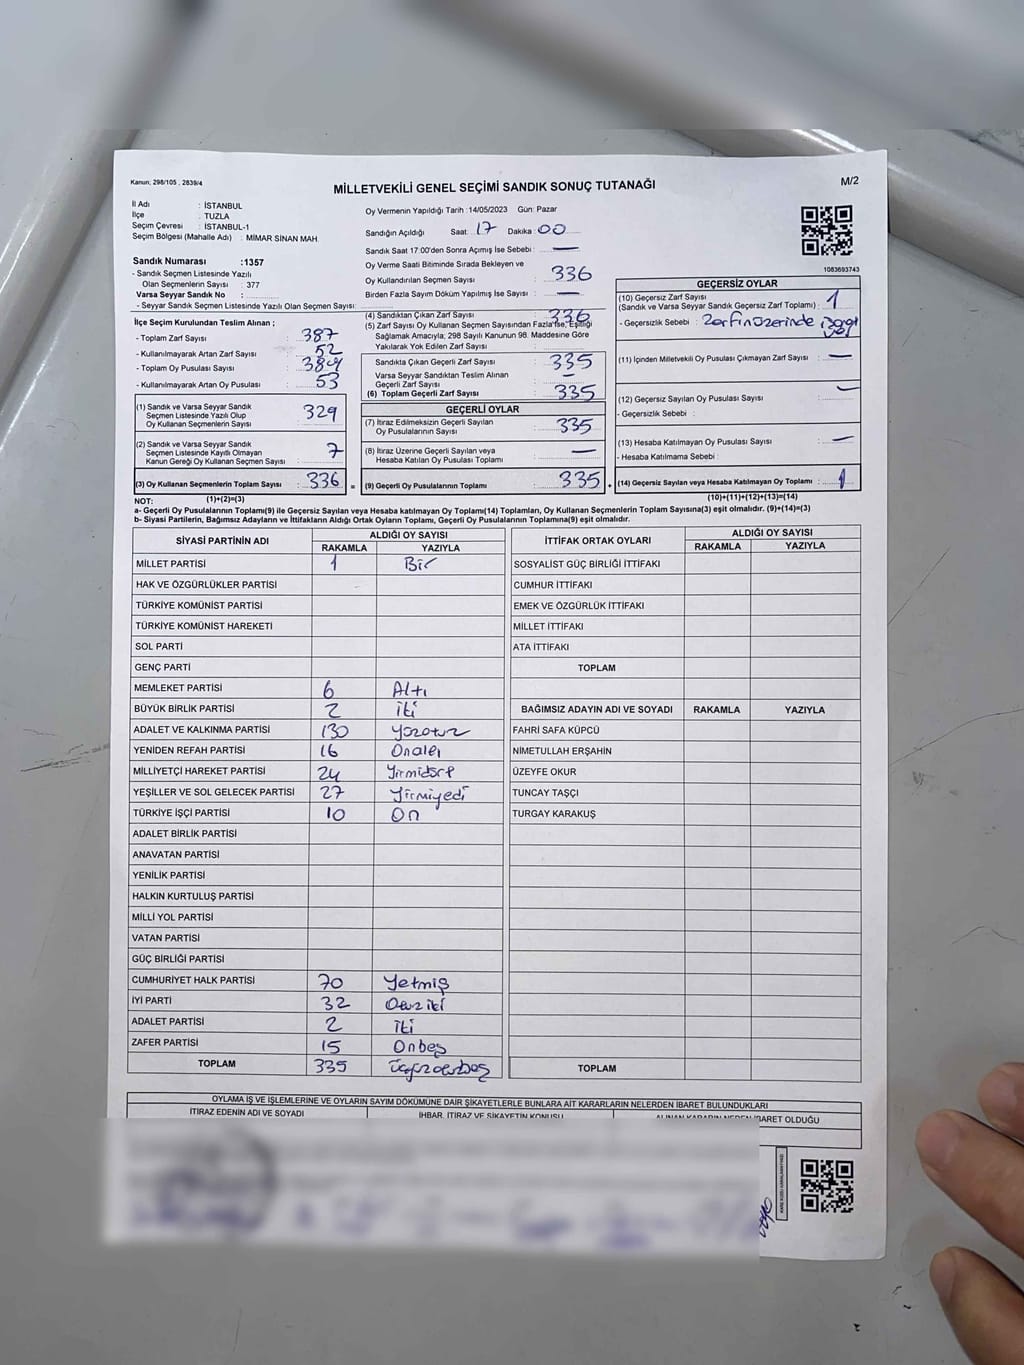 Kanun; 298/105 , 2839/4
MİLLETVEKİLİ GENEL SEÇİMİ SANDIK SONUÇ TUTANAĞI
M/2
İl Adı : İSTANBUL
İlçe : TUZLA
Seçim Çevresi : İSTANBUL-1
Seçim Bölgesi (Mahalle Adı) : MİMAR SİNAN MAH.
Sandık Numarası :1357
- Sandık Seçmen Listesinde Yazılı
Olan Seçmenlerin Sayısı : 377
Varsa Seyyar Sandık No :
- Seyyar Sandık Seçmen Listesinde Yazılı Olan Seçmen Sayısı:
Oy Vermenin Yapıldığı Tarih :14/05/2023 Gün: Pazar
Sandığın Açıldığı Saat: 17 Dakika: 00
Sandık Saat 17:00'den Sonra Açımış İse Sebebi : —
Oy Verme Saati Bitiminde Sırada Bekleyen ve
Oy Kullandırılan Seçmen Sayısı : 336
Birden Fazla Sayım Döküm Yapılmış İse Sayısı : —
1083693743
İlçe Seçim Kurulundan Teslim Alınan ;
- Toplam Zarf Sayısı : 387
- Kullanılmayarak Artan Zarf Sayısı : 52
- Toplam Oy Pusulası Sayısı : 389
- Kullanılmayarak Artan Oy Pusulası : 53
(1) Sandık ve Varsa Seyyar Sandık
Seçmen Listesinde Yazılı Olup
Oy Kullanan Seçmenlerin Sayısı : 329
(2) Sandık ve Varsa Seyyar Sandık
Seçmen Listesinde Kayıtlı Olmayan
Kanun Gereği Oy Kullanan Seçmen Sayısı : 7
(3) Oy Kullanan Seçmenlerin Toplam Sayısı : 336 =
(4) Sandıktan Çıkan Zarf Sayısı : 336
(5) Zarf Sayısı Oy Kullanan Seçmen Sayısından Fazla İse, Eşitliği
Sağlamak Amacıyla; 298 Sayılı Kanunun 98. Maddesine Göre
Yakılarak Yok Edilen Zarf Sayısı :
Sandıkta Çıkan Geçerli Zarf Sayısı : 335
Varsa Seyyar Sandıktan Teslim Alınan
Geçerli Zarf Sayısı : —
(6) Toplam Geçerli Zarf Sayısı : 335
GEÇERLİ OYLAR
(7) İtiraz Edilmeksizin Geçerli Sayılan
Oy Pusulalarının Sayısı : 335
(8) İtiraz Üzerine Geçerli Sayılan veya
Hesaba Katılan Oy Pusulası Toplamı : —
(9) Geçerli Oy Pusulalarının Toplamı : 335 +
GEÇERSİZ OYLAR
(10) Geçersiz Zarf Sayısı
(Sandık ve Varsa Seyyar Sandık Geçersiz Zarf Toplamı) : 1
- Geçersizlik Sebebi : Zarfın üzerinde
(11) İçinden Milletvekili Oy Pusulası Çıkmayan Zarf Sayısı : —
(12) Geçersiz Sayılan Oy Pusulası Sayısı : —
- Geçersizlik Sebebi :
(13) Hesaba Katılmayan Oy Pusulası Sayısı : —
- Hesaba Katılmama Sebebi :
(14) Geçersiz Sayılan veya Hesaba Katılmayan Oy Toplamı : 1
NOT: (1)+(2)=(3) (10)+(11)+(12)+(13)=(14)
a- Geçerli Oy Pusulalarının Toplamı(9) ile Geçersiz Sayılan veya Hesaba Katılmayan Oy Toplamı(14) Toplamları, Oy Kullanan Seçmenlerin Toplam Sayısına(3) eşit olmalıdır. (9)+(14)=(3)
b- Siyasi Partilerin, Bağımsız Adayların ve İttifakların Aldığı Ortak Oyların Toplamı, Geçerli Oy Pusulalarının Toplamına(9) eşit olmalıdır.
SİYASİ PARTİNİN ADI ALDIĞI OY SAYISI
RAKAMLA YAZIYLA
MİLLET PARTİSİ 1 Bir
HAK VE ÖZGÜRLÜKLER PARTİSİ
TÜRKİYE KOMÜNİST PARTİSİ
TÜRKİYE KOMÜNİST HAREKETİ
SOL PARTİ
GENÇ PARTİ
MEMLEKET PARTİSİ 6 Altı
BÜYÜK BİRLİK PARTİSİ 2 iki
ADALET VE KALKINMA PARTİSİ 130 yüzotuz
YENİDEN REFAH PARTİSİ 16 Onaltı
MİLLİYETÇİ HAREKET PARTİSİ 24 Yirmidört
YEŞİLLER VE SOL GELECEK PARTİSİ 27 Yirmiyedi
TÜRKİYE İŞÇİ PARTİSİ 10 On
ADALET BİRLİK PARTİSİ
ANAVATAN PARTİSİ
YENİLİK PARTİSİ
HALKIN KURTULUŞ PARTİSİ
MİLLİ YOL PARTİSİ
VATAN PARTİSİ
GÜÇ BİRLİĞİ PARTİSİ
CUMHURİYET HALK PARTİSİ 70 Yetmiş
İYİ PARTİ 32 Otuziki
ADALET PARTİSİ 2 iki
ZAFER PARTİSİ 15 Onbeş
TOPLAM 335 üçyüzotuzbeş
İTTİFAK ORTAK OYLARI ALDIĞI OY SAYISI
RAKAMLA YAZIYLA
SOSYALİST GÜÇ BİRLİĞİ İTTİFAKI
CUMHUR İTTİFAKI
EMEK VE ÖZGÜRLÜK İTTİFAKI
MİLLET İTTİFAKI
ATA İTTİFAKI
TOPLAM
BAĞIMSIZ ADAYIN ADI VE SOYADI RAKAMLA YAZIYLA
FAHRİ SAFA KÜPCÜ
NİMETULLAH ERŞAHİN
ÜZEYFE OKUR
TUNCAY TAŞÇI
TURGAY KARAKUŞ
TOPLAM
OYLAMA İŞ VE İŞLEMLERİNE VE OYLARIN SAYIM DÖKÜMÜNE DAİR ŞİKAYETLERLE BUNLARA AİT KARARLARIN NELERDEN İBARET BULUNDUKLARI
İTİRAZ EDENİN ADI VE SOYADI İHBAR, İTİRAZ VE ŞİKAYETİN KONUSU ALINAN KARARIN NEDEN İBARET OLDUĞU